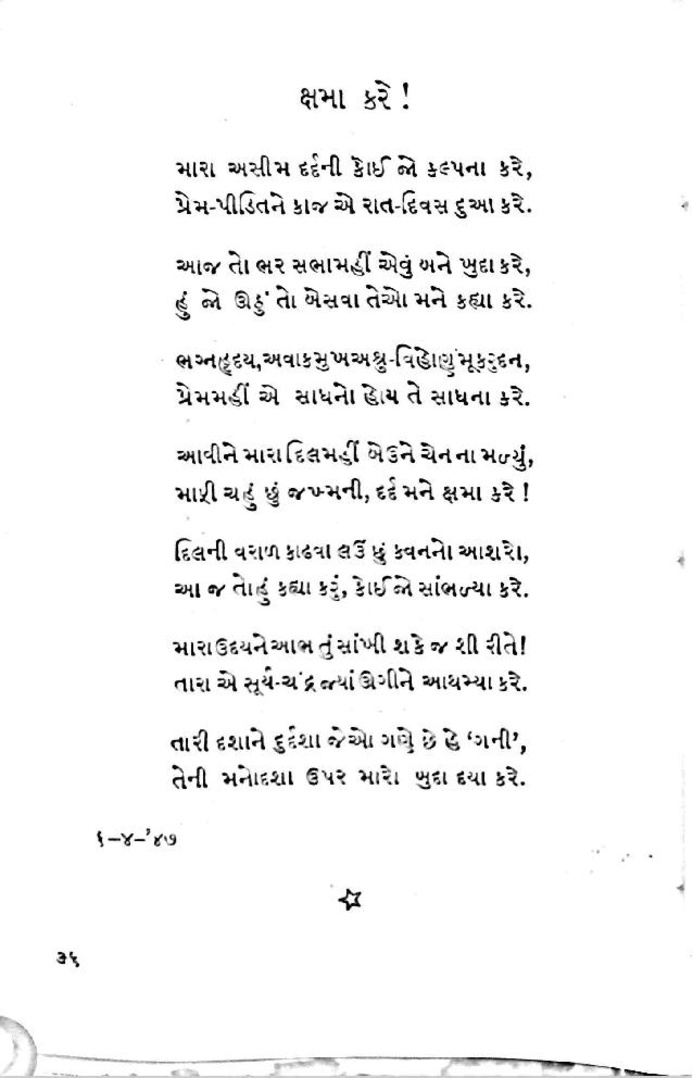 ક્ષમા કરે !
મારા અસીમ દર્દની કોઈ જો કલ્પના કરે,
પ્રેમ-પીડિતને કાજ એ રાત-દિવસ દુઆ કરે.
આજ તો ભર સભામહીં એવું બને ખુદા કરે,
હું જો ઊઠું તો બેસવા તેઓ મને કહ્યા કરે.
ભગ્નહૃદય, અવાકમુખ અશ્રુ-વિહોણું મૂકરુદન,
પ્રેમમહીં એ સાધનો હોય તે સાધના કરે.
આવીને મારા દિલમહીં બેઉને ચેન ના મળ્યું,
માફી ચહું છું જખ્મની, દર્દ મને ક્ષમા કરે !
દિલની વરાળ કાઢવા લઉં છું કવનનો આશરો,
આ જ તો હું કહ્યા કરું, કોઈ જો સાંભળ્યા કરે.
મારા ઉદયને આભ તું સાંખી શકે જ શી રીતે!
તારા એ સૂર્ય-ચંદ્ર જ્યાં ઊગીને આથમ્યા કરે.
તારી દશાને દુર્દશા જેઓ ગણે છે હે ‘ગની’,
તેની મનોદશા ઉપર મારો ખુદા દયા કરે.
૬-૪-'૪૭
૩૬